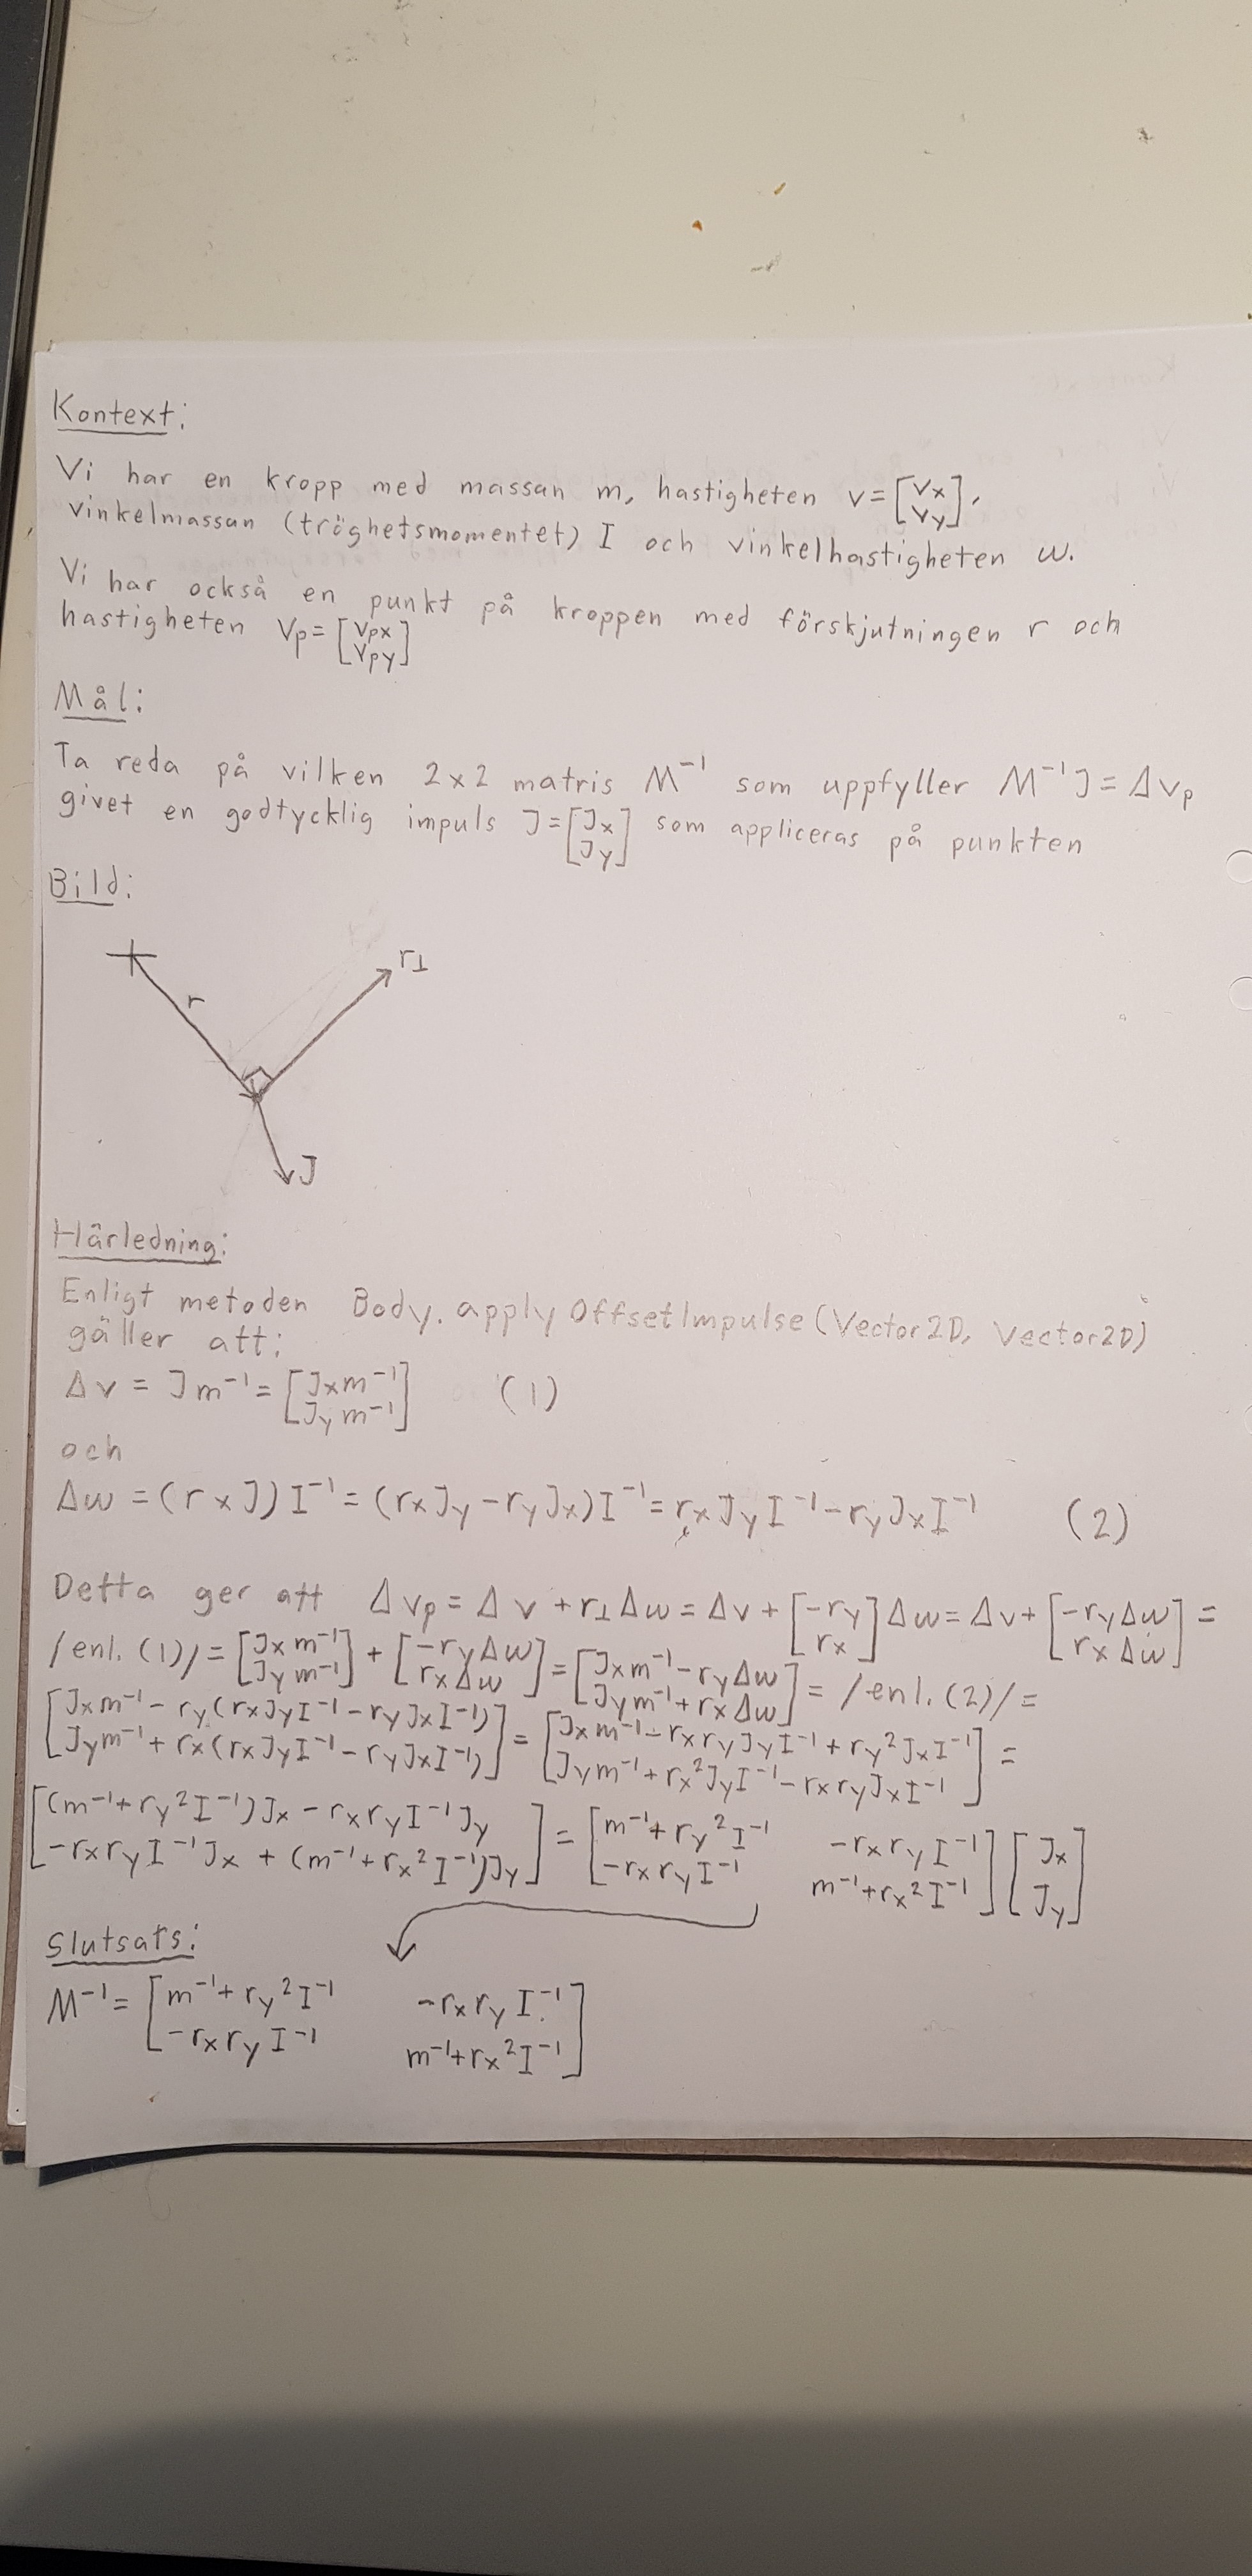 Kontext:
Vi har en kropp med massan m, hastigheten v = [vx vy],
vinkelmassan (tröghetsmomentet) I och vinkelhastigheten w.
Vi har också en punkt på kroppen med förskjutningen r och
hastigheten Vp = [Vpx Vpy]
Mål:
Ta reda på vilken 2x2 matris M⁻¹ som uppfyller M⁻¹J = Δvp
givet en godtycklig impuls J = [Jx Jy] som appliceras på punkten
Bild:
r
r⊥
J
Härledning:
Enligt metoden Body.applyOffsetImpulse(Vector2D, Vector2D)
gäller att:
Δv = Jm⁻¹ = [Jxm⁻¹ Jym⁻¹] (1)
och
Δw = (r×J)I⁻¹ = (rxJy - ryJx)I⁻¹ = rxJyI⁻¹ - ryJxI⁻¹ (2)
Detta ger att Δvp = Δv + r⊥Δw = Δv + [-ry rx]Δw = Δv + [-ryΔw rxΔw] =
/enl. (1)/ = [Jxm⁻¹ Jym⁻¹] + [-ryΔw rxΔw] = [Jxm⁻¹ - ryΔw Jym⁻¹ + rxΔw] = /enl. (2)/ =
[Jxm⁻¹ - ry(rxJyI⁻¹ - ryJxI⁻¹) Jym⁻¹ + rx(rxJyI⁻¹ - ryJxI⁻¹)] = [Jxm⁻¹ - rxryJyI⁻¹ + ry²JxI⁻¹ Jym⁻¹ + rx²JyI⁻¹ - rxryJxI⁻¹] =
[(m⁻¹ + ry²I⁻¹)Jx - rxryI⁻¹Jy -rxryI⁻¹Jx + (m⁻¹ + rx²I⁻¹)Jy] = [m⁻¹ + ry²I⁻¹ -rxryI⁻¹ -rxryI⁻¹ m⁻¹ + rx²I⁻¹] [Jx Jy]
Slutsats:
M⁻¹ = [m⁻¹ + ry²I⁻¹ -rxryI⁻¹
-rxryI⁻¹ m⁻¹ + rx²I⁻¹]